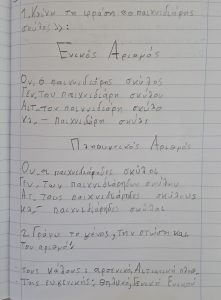 1. Κλίνω τη φράση "ο παιχνιδιάρης
σκύλος":
Ενικός Αριθμός
Ον. ο παιχνιδιάρης σκύλος
Γεν. του παιχνιδιάρη σκύλου
Αιτ. τον παιχνιδιάρη σκύλο
Κλ. – παιχνιδιάρη σκύλε
Πληθυντικός Αριθμός
Ον. οι παιχνιδιάρηδες σκύλοι
Γεν. των παιχνιδιάρηδων σκύλων
Αιτ. τους παιχνιδιάρηδες σκύλους
Κλ. – παιχνιδιάρηδες σκύλοι
2. Γράφω το γένος, την πτώση και
τον αριθμό:
τους κάλους: αρσενικό, Αιτιατική
της ευγενικής: θηλυκό, Γενική, Ενικού